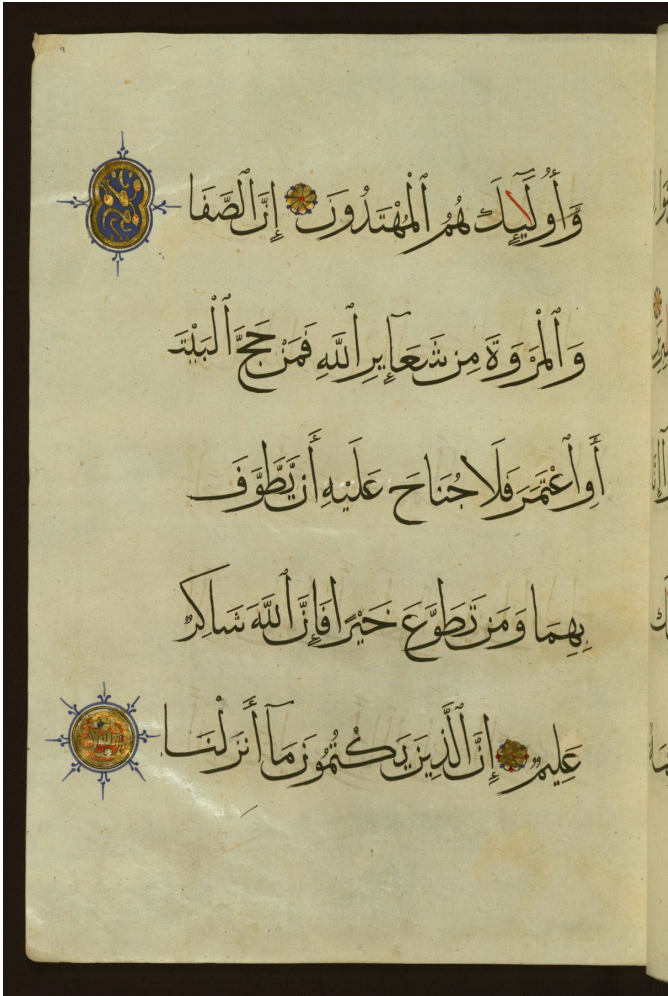 وَأُولَٰٓئِكَ هُمُ ٱلْمُهْتَدُونَ إِنَّ ٱلصَّفَا
وَٱلْمَرْوَةَ مِن شَعَآئِرِ ٱللَّهِ فَمَنْ حَجَّ ٱلْبَيْتَ
أَوِ ٱعْتَمَرَ فَلَا جُنَاحَ عَلَيْهِ أَن يَّطَّوَّفَ
بِهِمَا وَمَن تَطَوَّعَ خَيْرًا فَإِنَّ ٱللَّهَ شَاكِرٌ
عَلِيمٌ إِنَّ ٱلَّذِينَ يَكْتُمُونَ مَآ أَنزَلْنَا